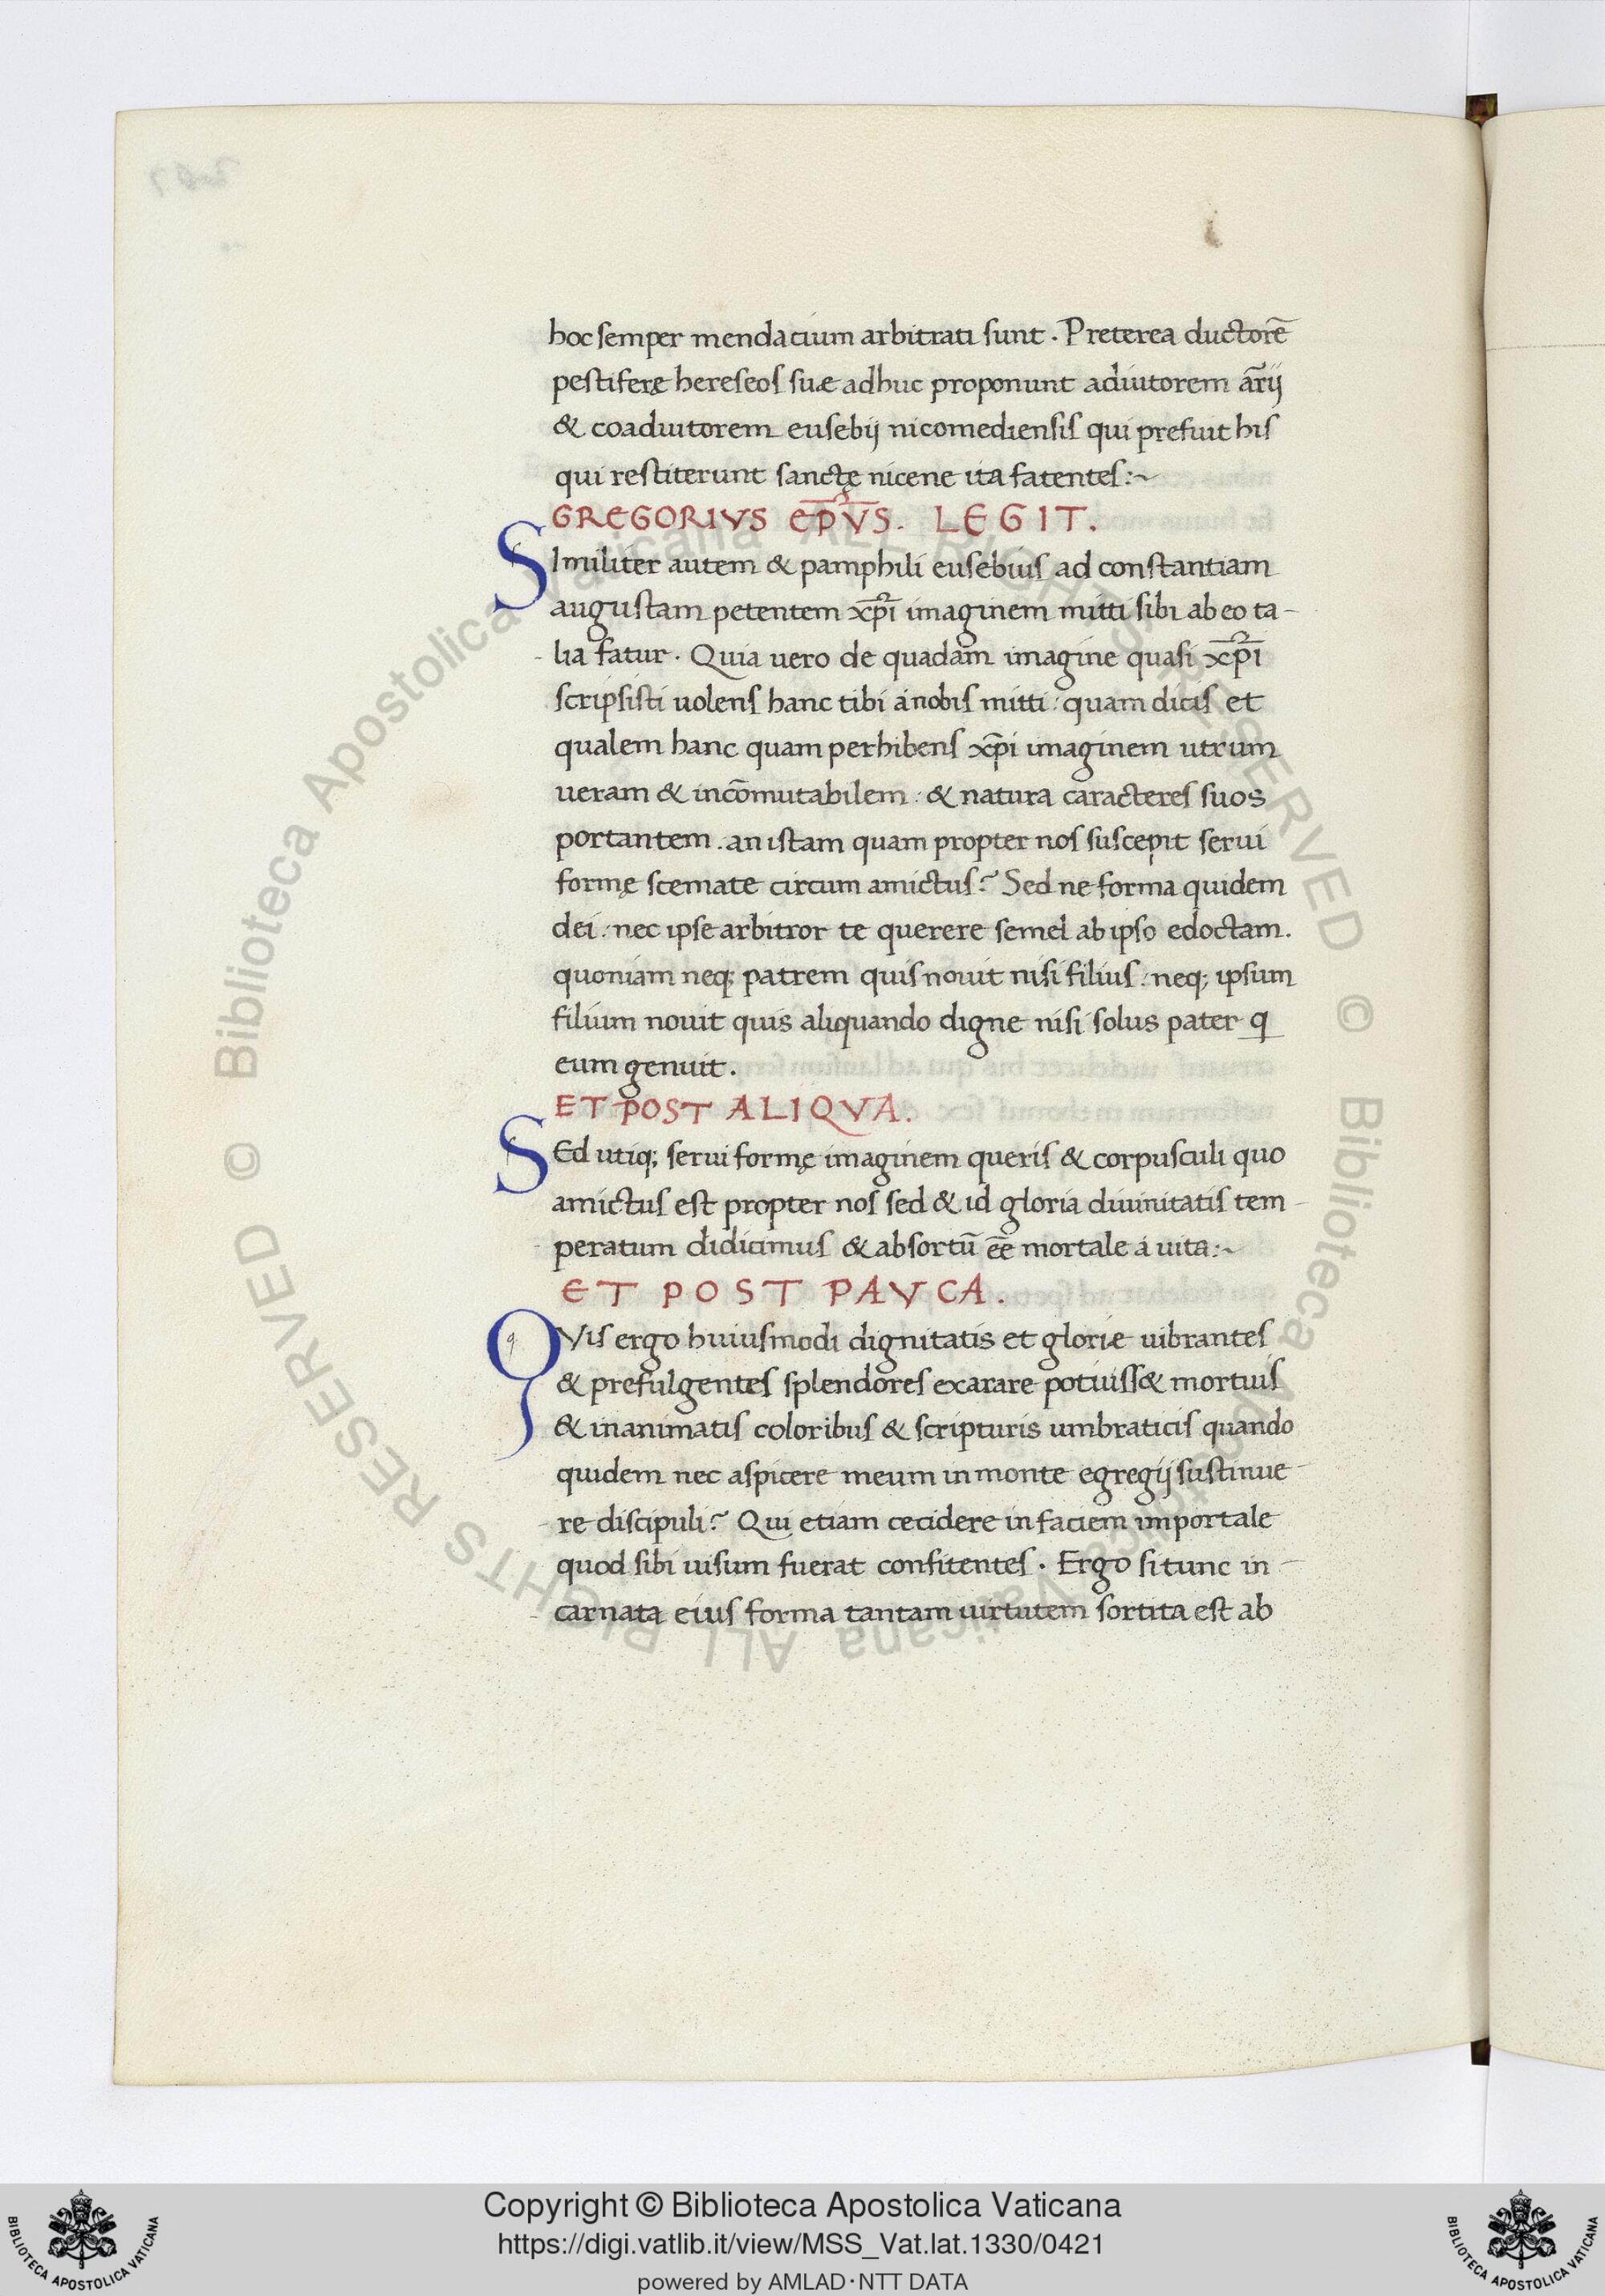 hoc semper mendacium arbitrati sunt. Preterea ductorē
pestiferę hereseos suæ adhuc proponunt adiutorem arīj
& coadiutorem eusebij nicomediensis qui prefuit his
qui restiterunt sanctę nicene ita fatentes:~
GREGORIVS EP̄VS. LEGIT.
SImiliter autem & pamphili eusebius ad constantiam
augustam petentem xp̄i imaginem mitti sibi ab eo ta-
-lia fatur. Quia uero de quadam imagine quasi xp̄i
scripsisti uolens hanc tibi a nobis mitti: quam dicis et
qualem hanc quam perhibens xp̄i imaginem utrum
ueram & incōmutabilem: & natura caracteres suos
portantem. an istam quam propter nos suscepit serui
formę scemate circum amictus? Sed ne forma quidem
dei: nec ipse arbitror te querere semel ab ipso edoctam.
quoniam neq; patrem quis nouit nisi filius: neq; ipsum
filium nouit quis aliquando digne nisi solus pater q
eum genuit.
ET POST ALIQVA.
SEd utiq; serui formę imaginem queris & corpusculi quo
amictus est propter nos sed & id gloria diuinitatis tem-
-peratum didicimus & absortū ēē mortale á uita:~
ET POST PAVCA.
QVis ergo huiusmodi dignitatis et glorie uibrantes
& prefulgentes splendores exarare potuiss& mortuis
& inanimatis coloribus & scripturis umbraticis quando
quidem nec aspicere meum in monte egregij sustinue-
-re discipuli? Qui etiam cecidere in faciem importale
quod sibi uisum fuerat confitentes. Ergo si tunc in-
-carnata eius forma tantam uirtutem sortita est ab
Copyright © Biblioteca Apostolica Vaticana
https://digi.vatlib.it/view/MSS_Vat.lat.1330/0421
powered by AMLAD·NTT DATA
BIBLIOTECA APOSTOLICA VATICANA
BIBLIOTECA APOSTOLICA VATICANA
© Biblioteca Apostolica Vaticana ALL RIGHTS RESERVED
© Biblioteca Apostolica Vaticana ALL RIGHTS RESERVED